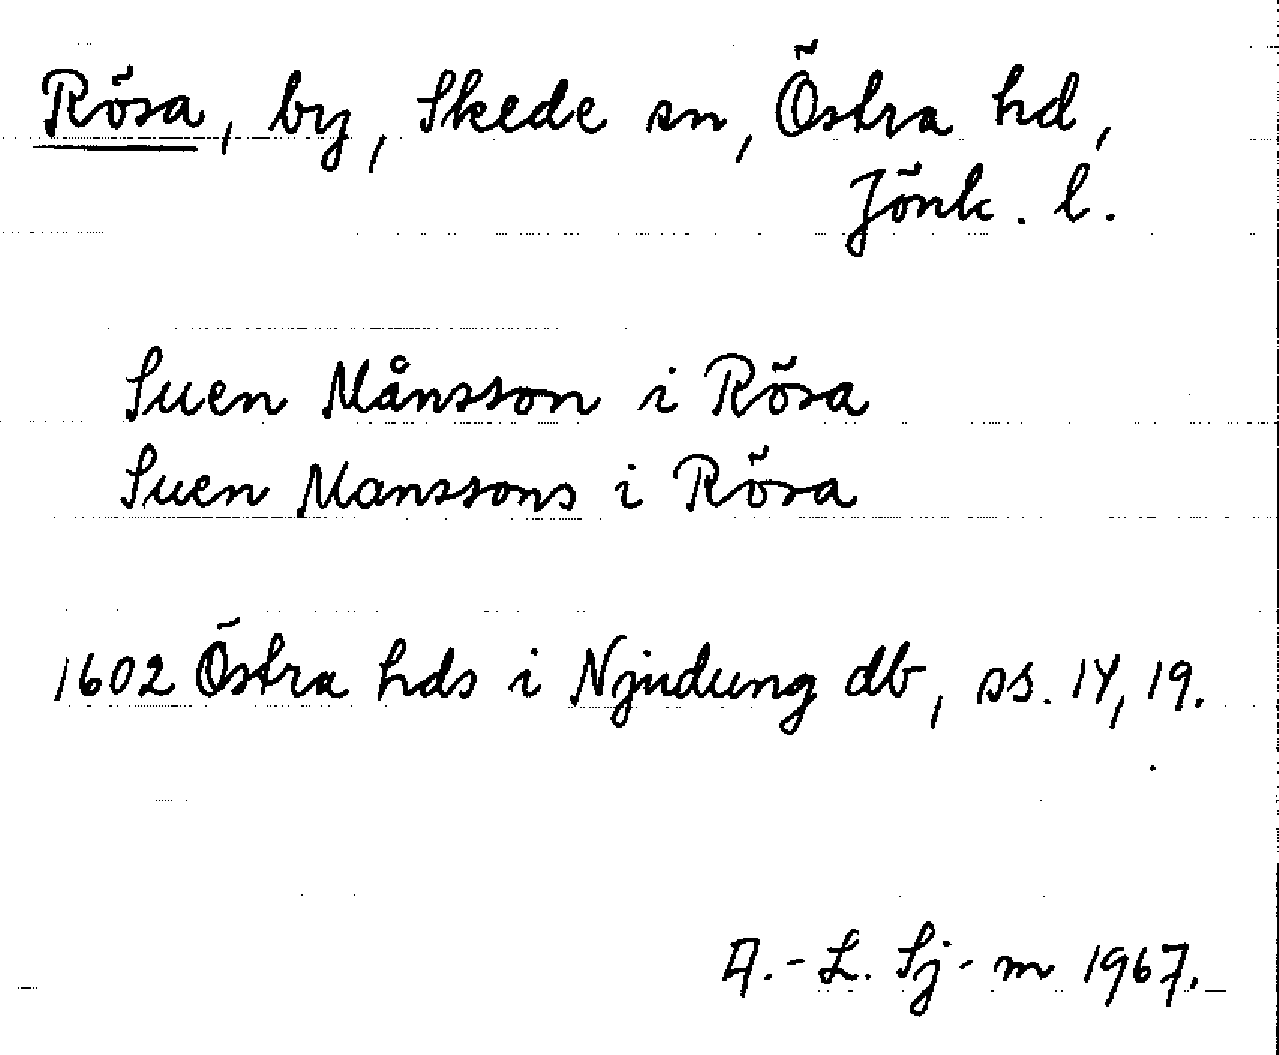 Rösa, by, Skede sn, Östra hd,
Jönk. l.
Suen Månsson i Rösa
Suen Manssons i Rösa
1602 Östra hds i Njudung db, ss. 14, 19.
A.-L. Sj-m 1967.